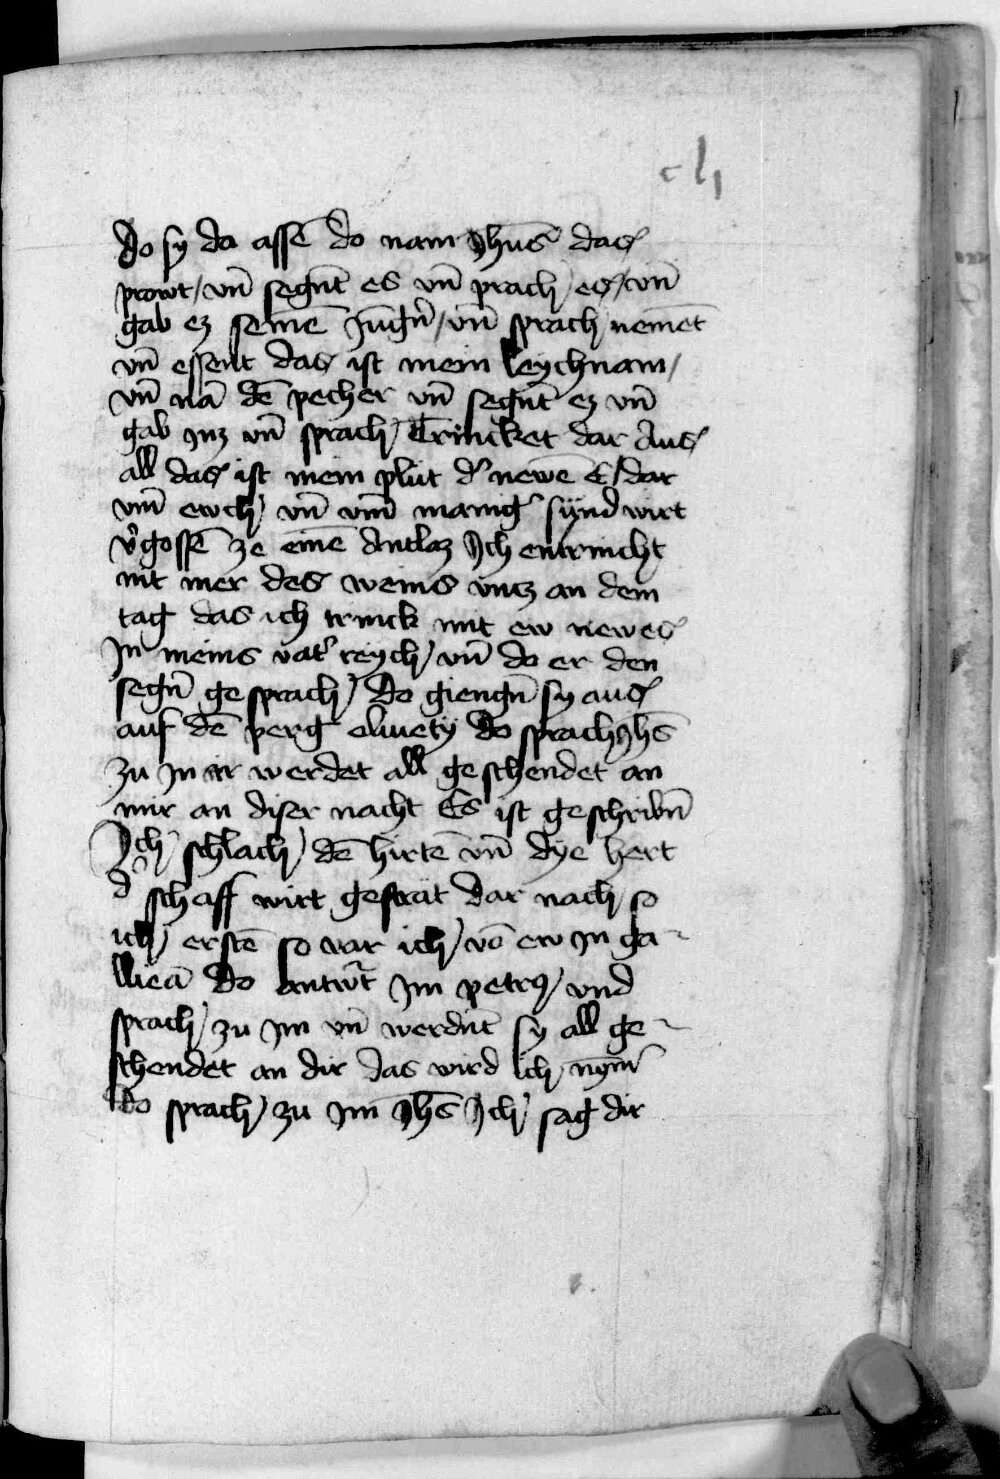 clj
Do sy da assē do nam Jhūs das
prowt / vn̄ segnt̄ es vn̄ prach es / vn̄
gab ez seinē Jūgn̄ / vn̄ sprach nemēt
vn̄ essent das ist mein leychnam /
vn̄ nā dē pecher vn̄ segnt̄ ez vn̄
gab Inz vn̄ sprach / Trincket dar Aus
all das ist mein plut d' newē E / dar
vm̄ ewch / vn̄ vm̄ manig' sünd wirt
v'gossē ze einē Antlaz Ich entrincht
nit mer des weins vntz an dem
tag das ich trinck mit ew newes
In meins vat' reych / vn̄ do er den
segn̄ ge sprach / Do giengn̄ sy aus
auf dē perg oliuety Do sprach Jhs̄
zu In Ir werdet all geschendet an
mir an diser nacht Es ist geschribn̄
Ich schlach / dē hirtē vn̄ dye hert
d' schaff wirt gestrāt Dar nach so
ich / erstē so var ich / vō ew In ga-
lileā Do antwrt̄ Im petrus / vnd
sprach / zu Im vn̄ werdnt̄ sy all ge-
schendet an dir das wird ich nym̄
Do sprach / zu Im Jhs̄ Ich sag dir